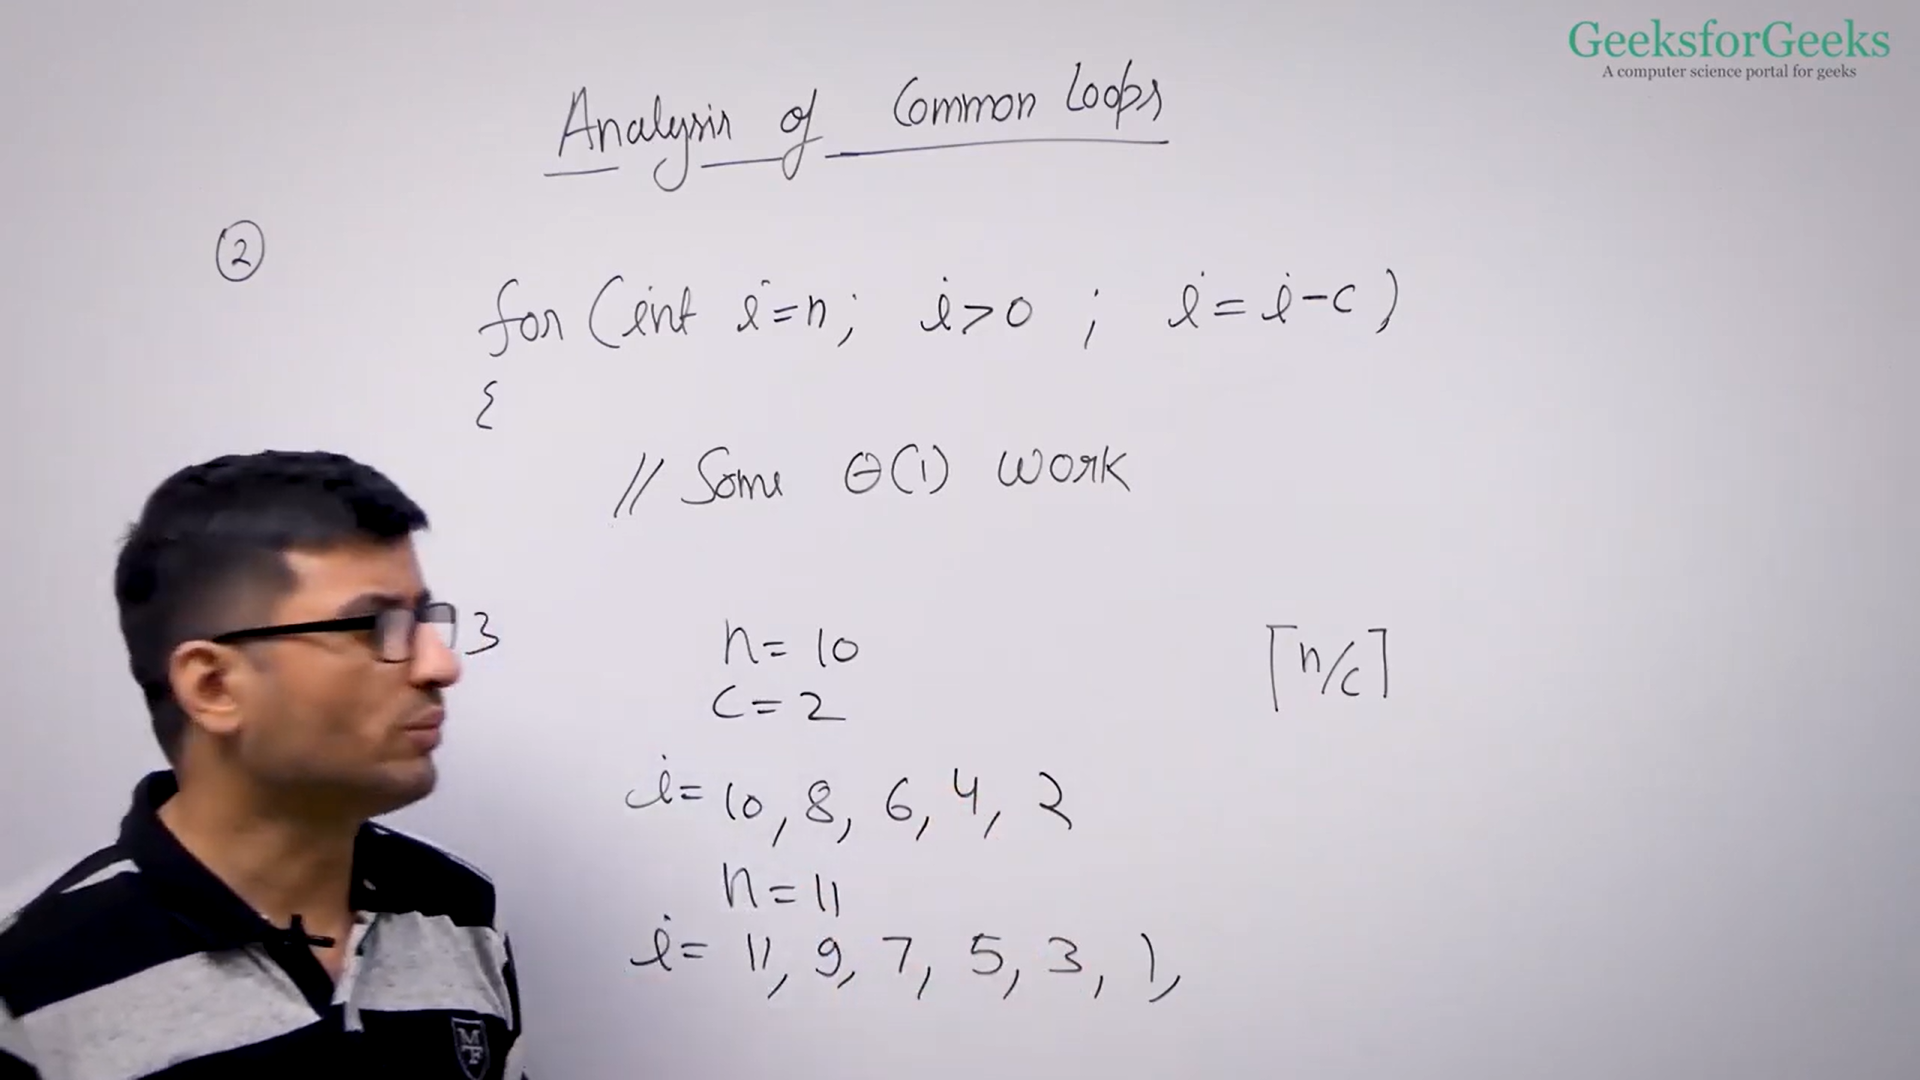 GeeksforGeeks
A computer science portal for geeks
Analysis of Common Loops
②
for (int i=n; i>0 ; i=i-c)
{
// Some Θ(1) work
}
n= 10
⌈n/c⌉
c= 2
i= 10, 8, 6, 4, 2
n= 11
i= 11, 9, 7, 5, 3, 1,
MF